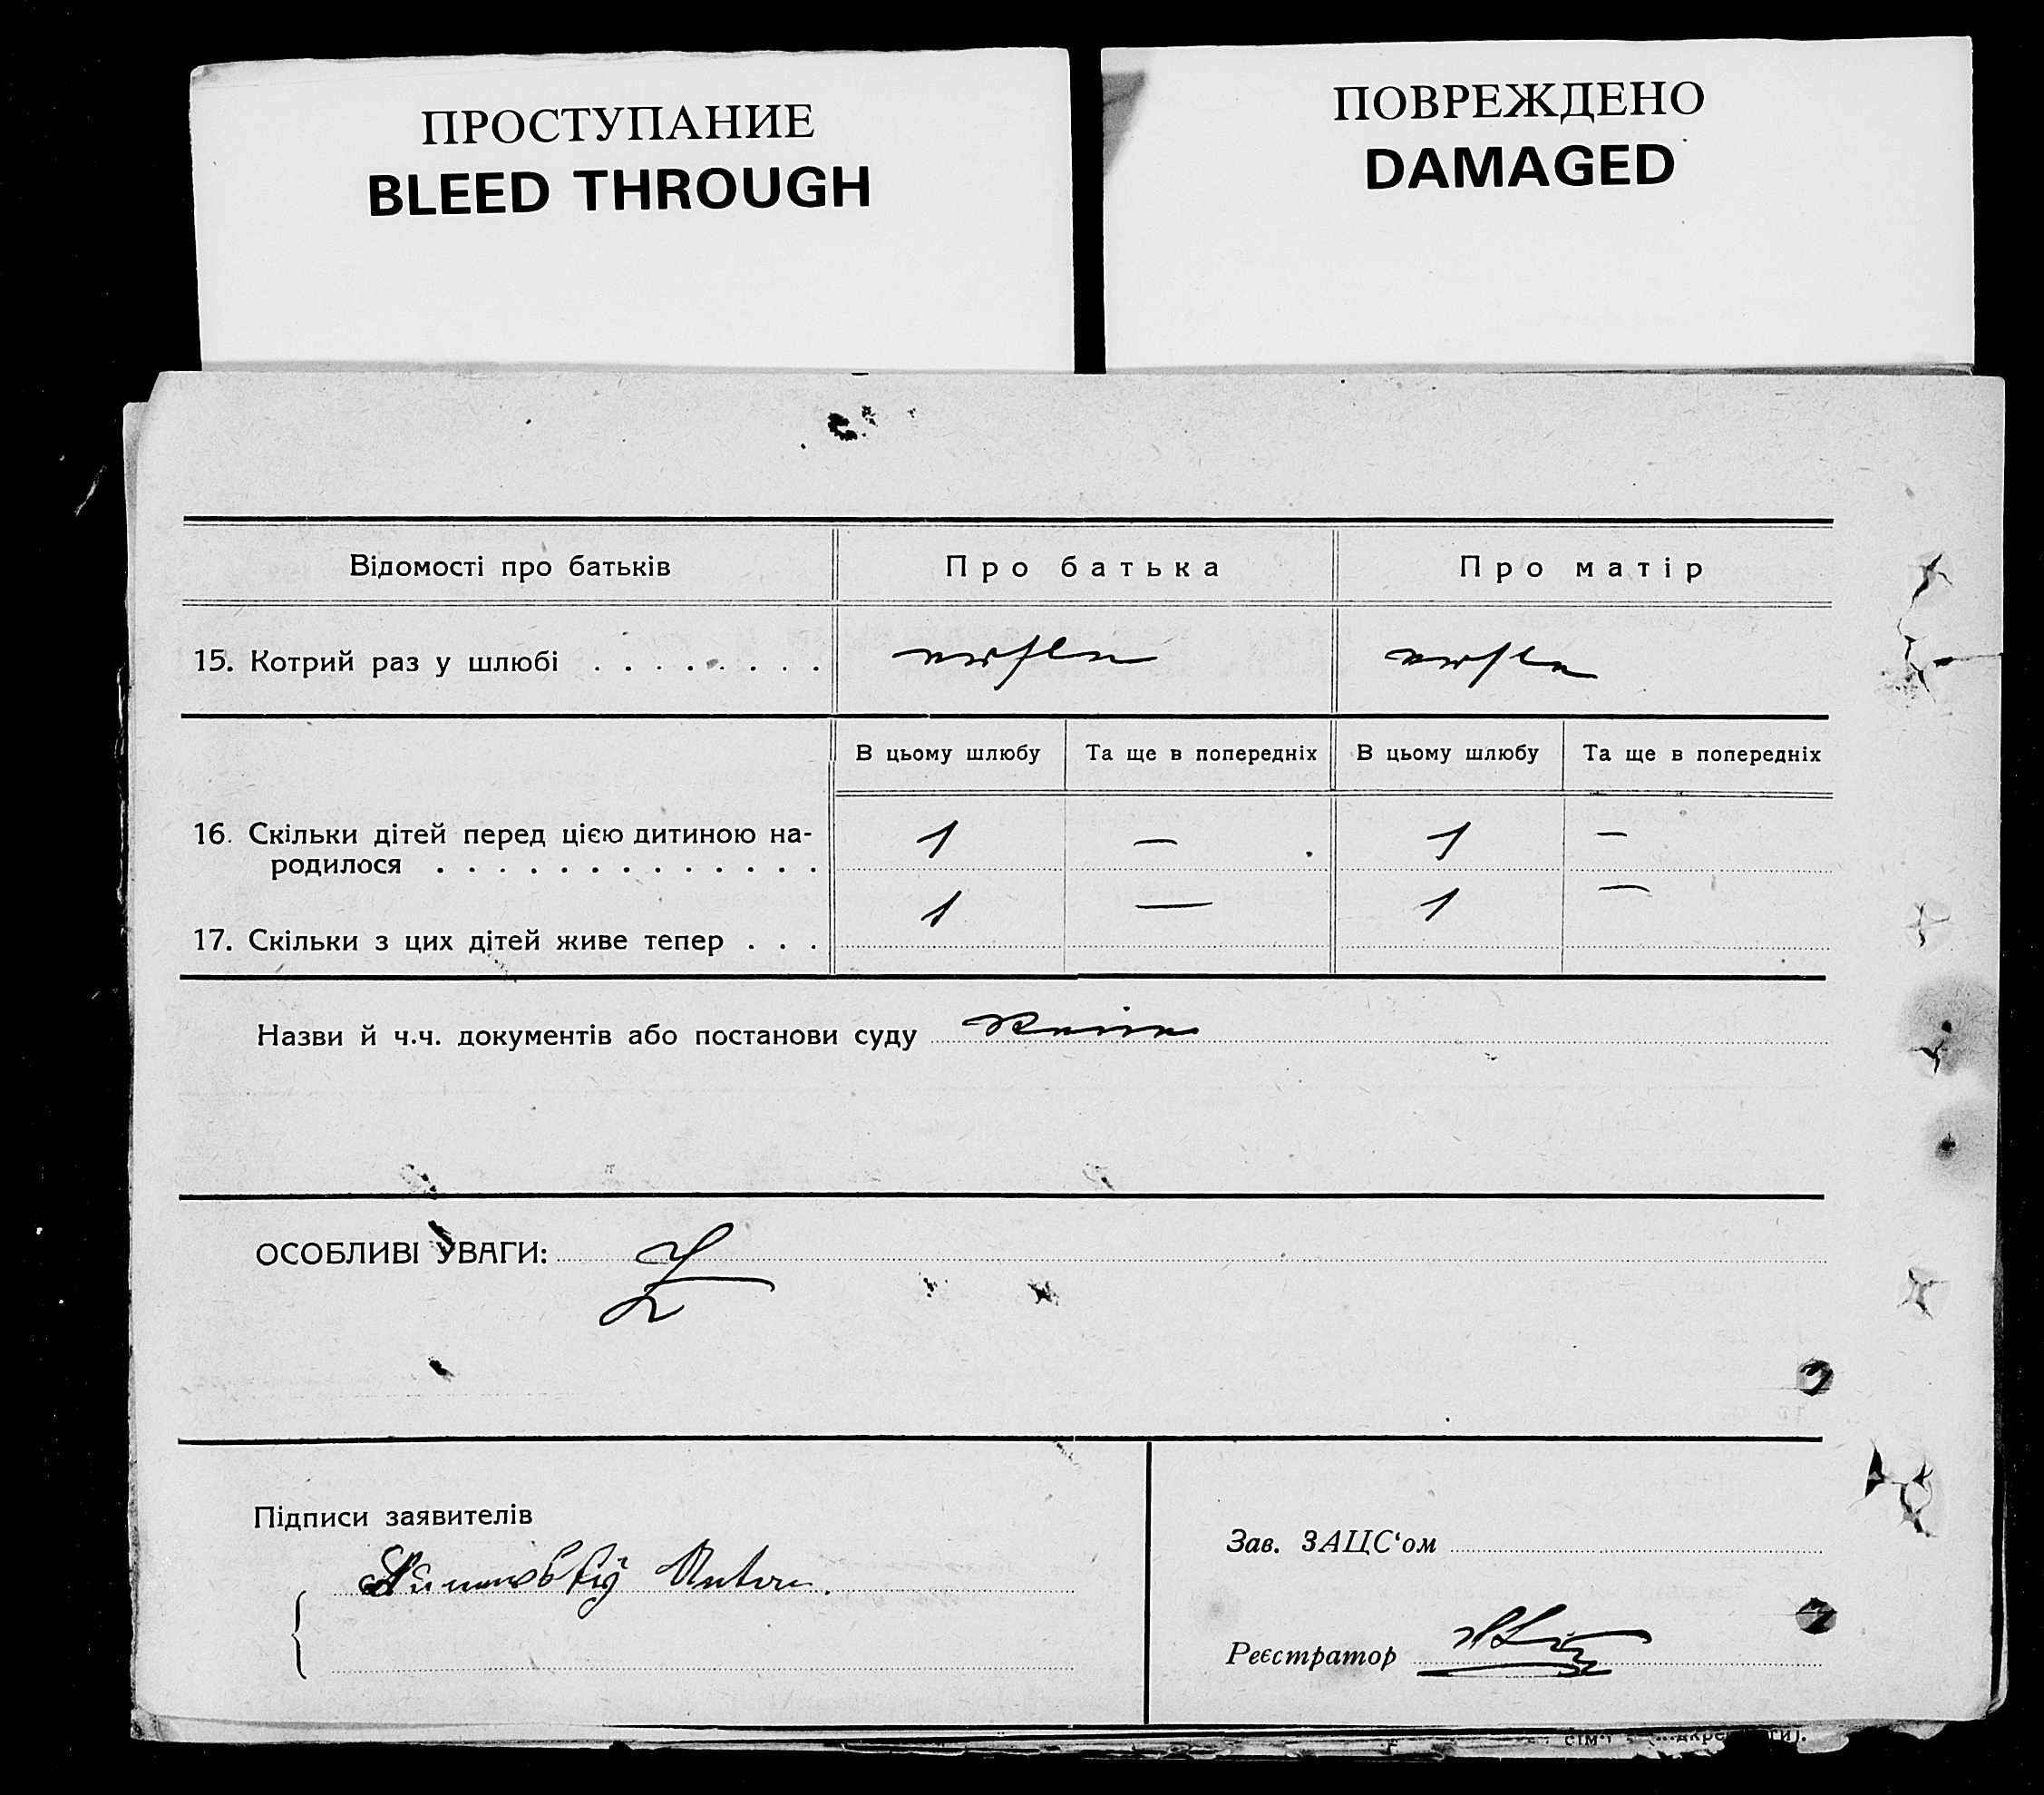 ПРОСТУПАНИЕ
BLEED THROUGH
ПОВРЕЖДЕНО
DAMAGED
Відомості про батьків
Про батька
Про матір
15. Котрий раз у шлюбі . . . . . . . .
В цьому шлюбу
Та ще в попередніх
В цьому шлюбу
Та ще в попередніх
16. Скільки дітей перед цією дитиною на-
родилося . . . . . . . . . . . . .
1 — 1 —
17. Скільки з цих дітей живе тепер . . .
1 — 1 —
Назви й ч.ч. документів або постанови суду
ОСОБЛИВІ УВАГИ:
Підписи заявителів
Anton.
Зав. ЗАЦС‘ом
Реєстратор